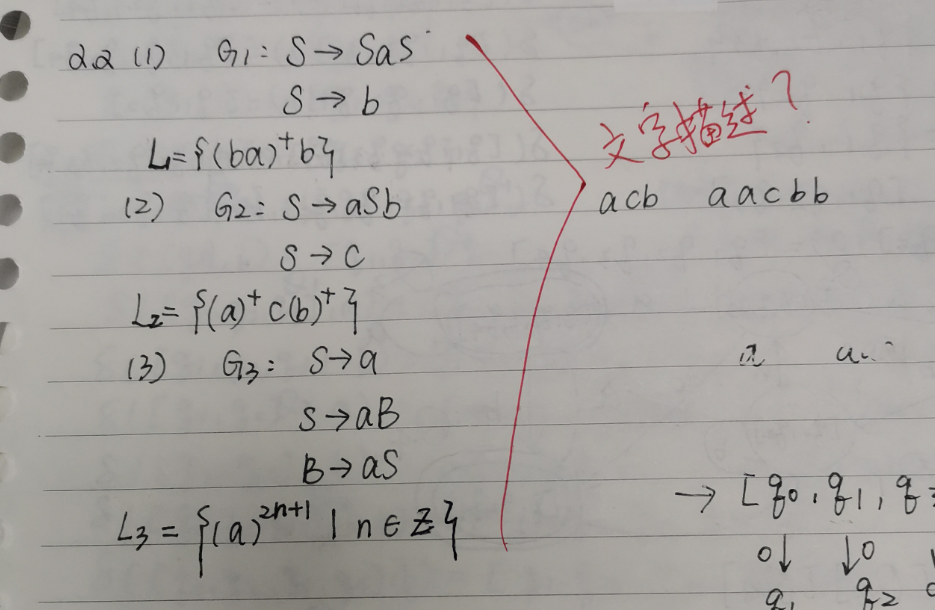 2.2 (1) G1: S → SaS
S → b
L1={(ba)⁺b}
(2) G2: S → aSb
S → C
L2={(a)⁺c(b)⁺}
(3) G3: S → a
S → aB
B → aS
L3 = {(a)²ⁿ⁺¹ | n ∈ Z}
文字描述？
acb aacbb
a a..
→ [q0, q1, q
0↓ ↓0
q1 q2